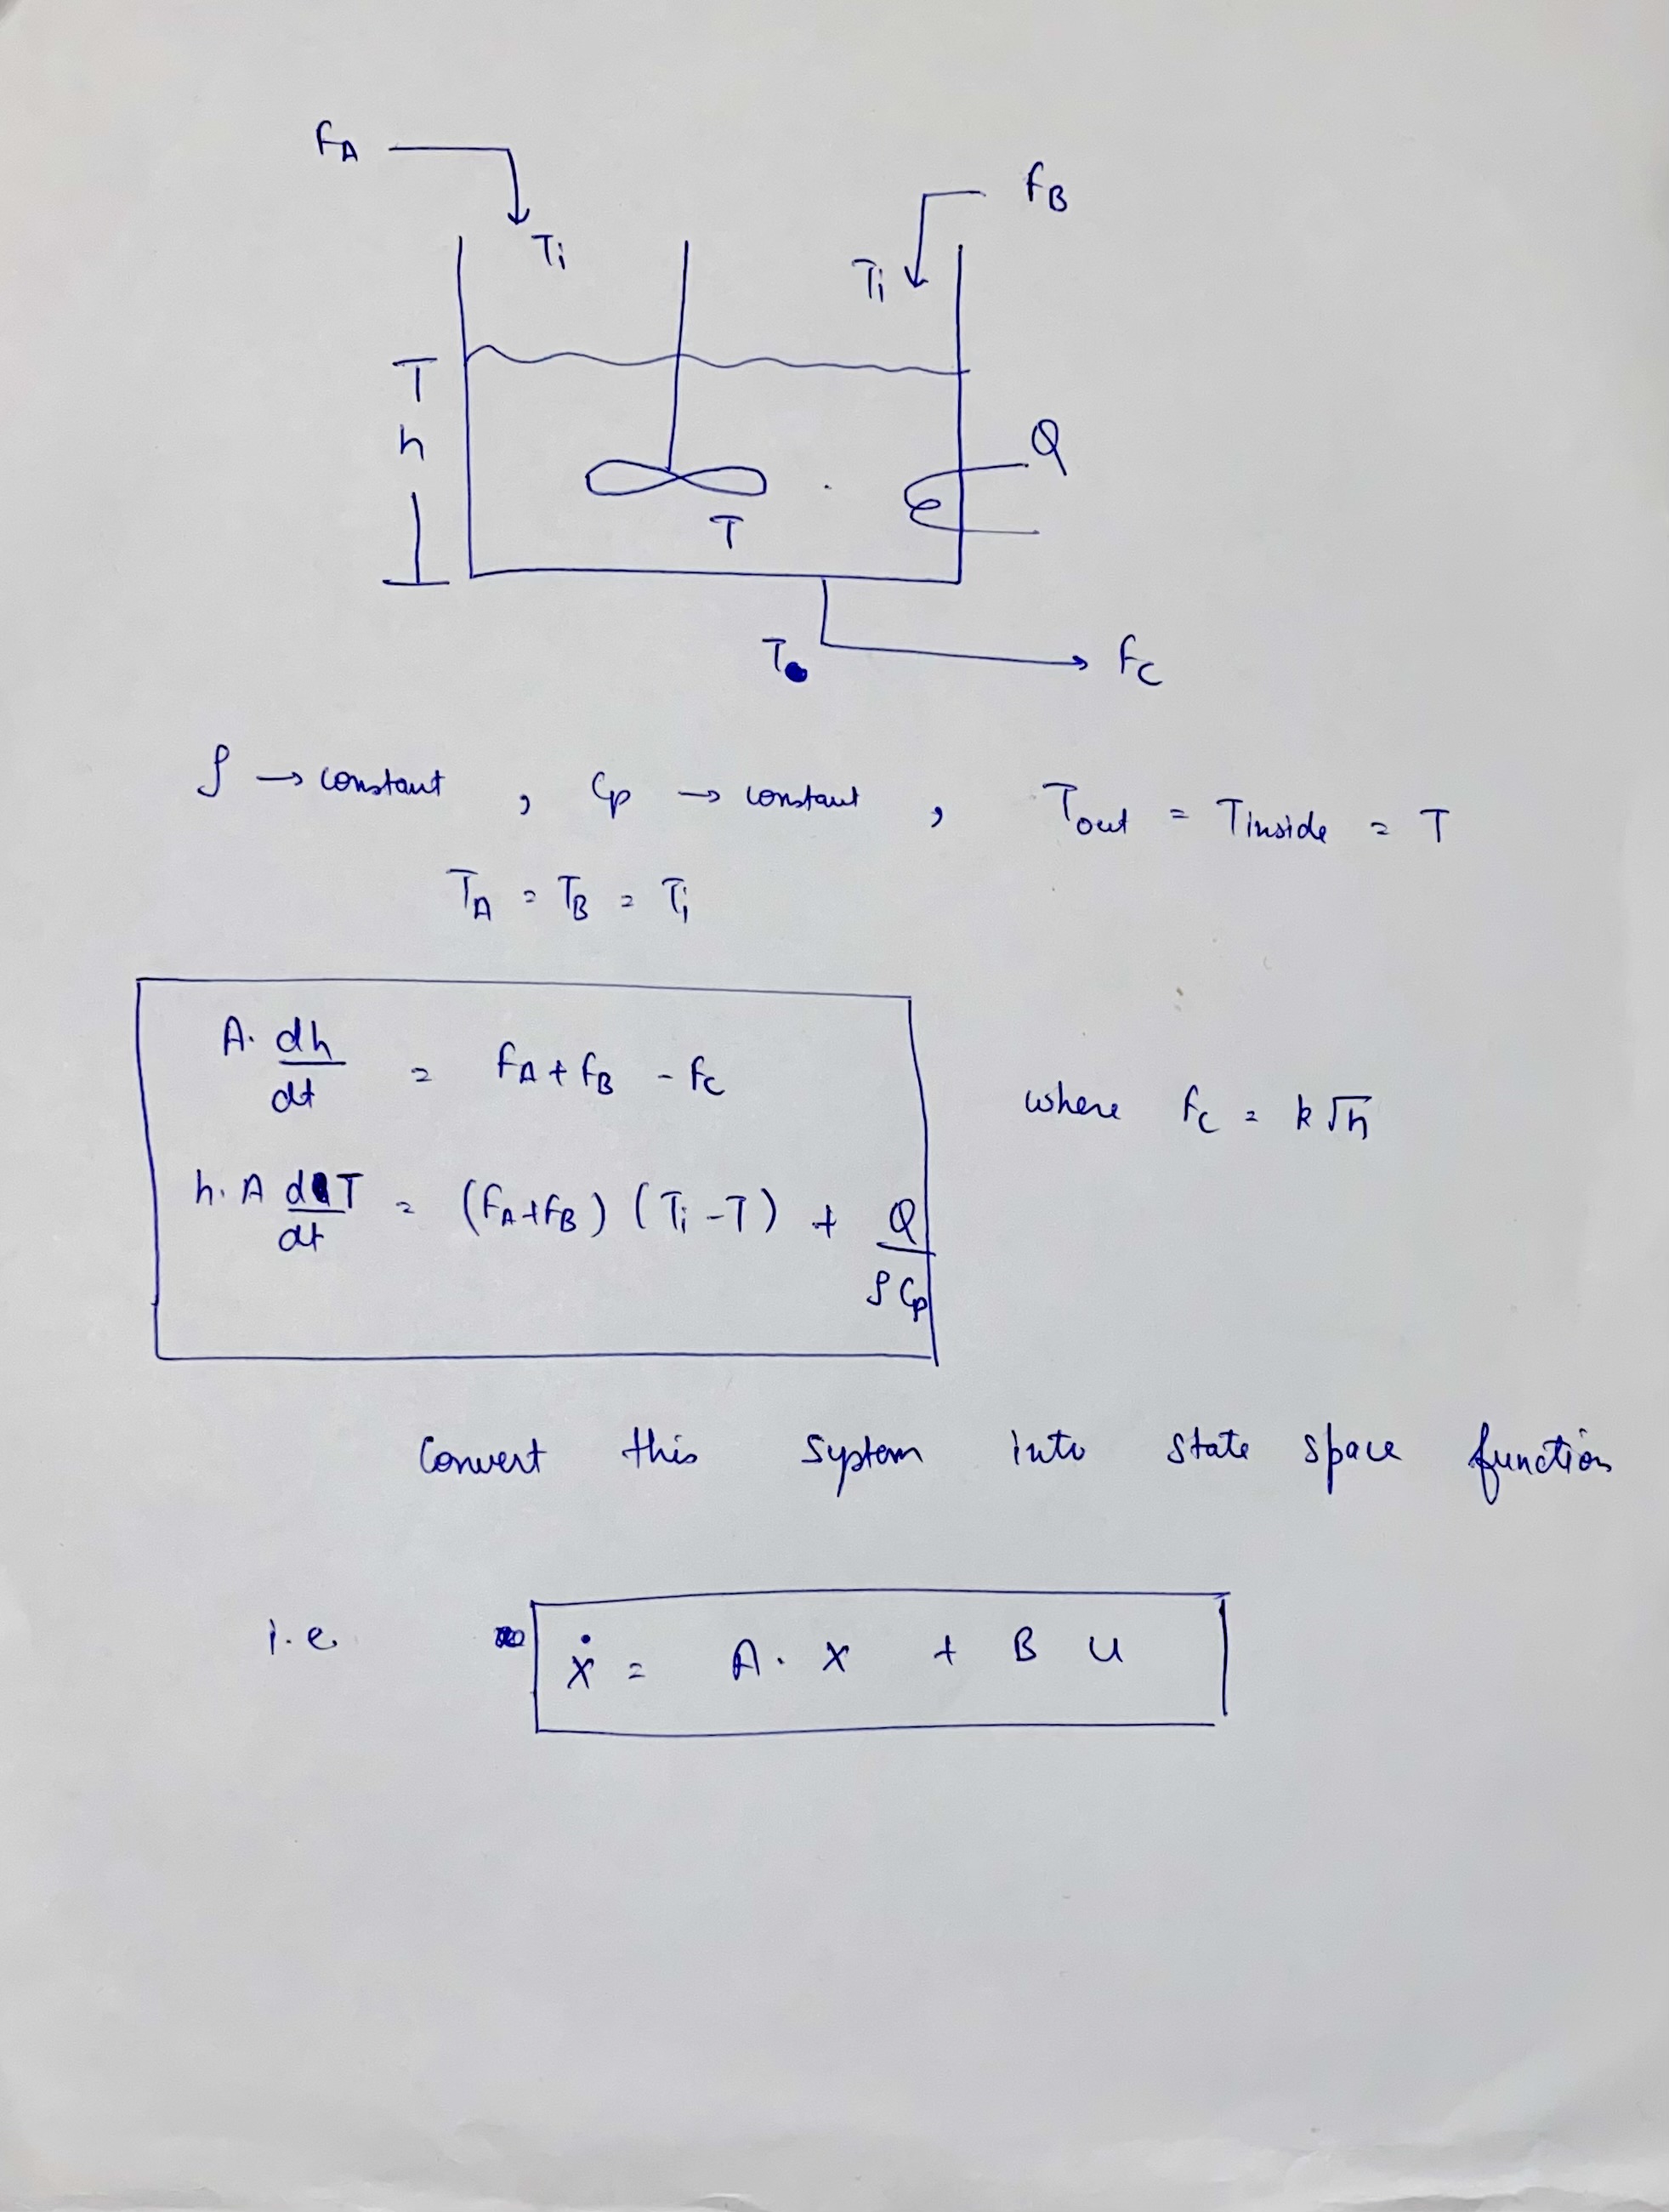 fA
fB
Ti
Ti
T
h
Q
T
fc
ρ → constant , Cp → constant , Tout = Tinside = T
TA = TB = Ti
A. dh/dt = fA + fB - fc
where fc = k√h
h. A dT/dt = (fA+fB) (Ti - T) + Q/ρCp
Convert this system into state space function
i.e. ẋ = A. x + B u